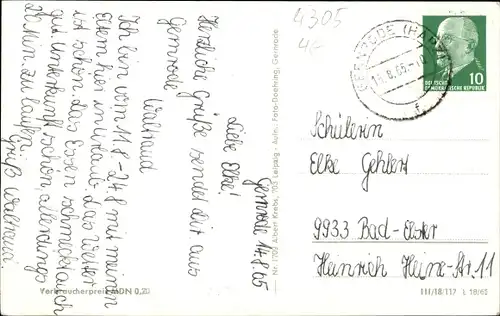 4305
Gernrode 14.8.65
Liebe Elke!
Herzliche Grüße sendet dir aus
Gernrode
Waltraud
Ich bin vom 11.8-24.8 mit meinen
Eltern hier in Urlaub das Wetter
ist schön das Essen schmeckt auch
gut Unterkunft schön, allerdings
20 Min. zu laufen.
Gruß Waltraud
Verbraucherpreis MDN 0,20
Nr. 1709 Albert Krebs, 703 Leipzig - Aufn. Foto-Doehring, Gernrode
GERNRODE (HARZ)
DEUTSCHE
DEMOKRATISCHE REPUBLIK
10
Schülerin
Elke Gehlert
9933 Bad-Elster
Heinrich Heine-Str. 11
III/18/117 L 18/65